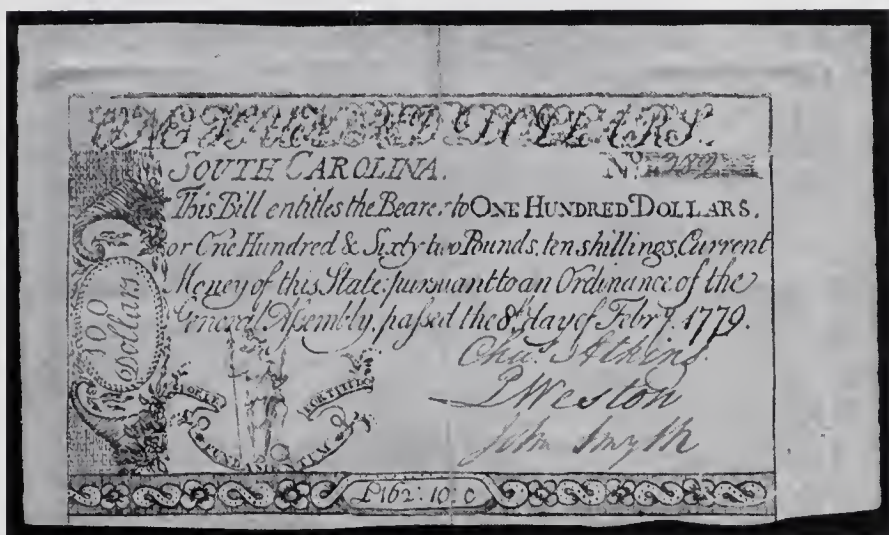 ONE HUNDRED DOLLARS.
SOUTH CAROLINA. No.
This Bill entitles the Bearer to ONE HUNDRED DOLLARS.
or One Hundred & Sixty two Pounds, ten shillings, Current
Money of this State, pursuant to an Ordinance of the
General Assembly, passed the 8th day of Febry. 1779.
100
Dollars
Chas. Atkins
PWeston
John Smyth
FORTITUD
FUNDAMENTUM
£162: 10: 0